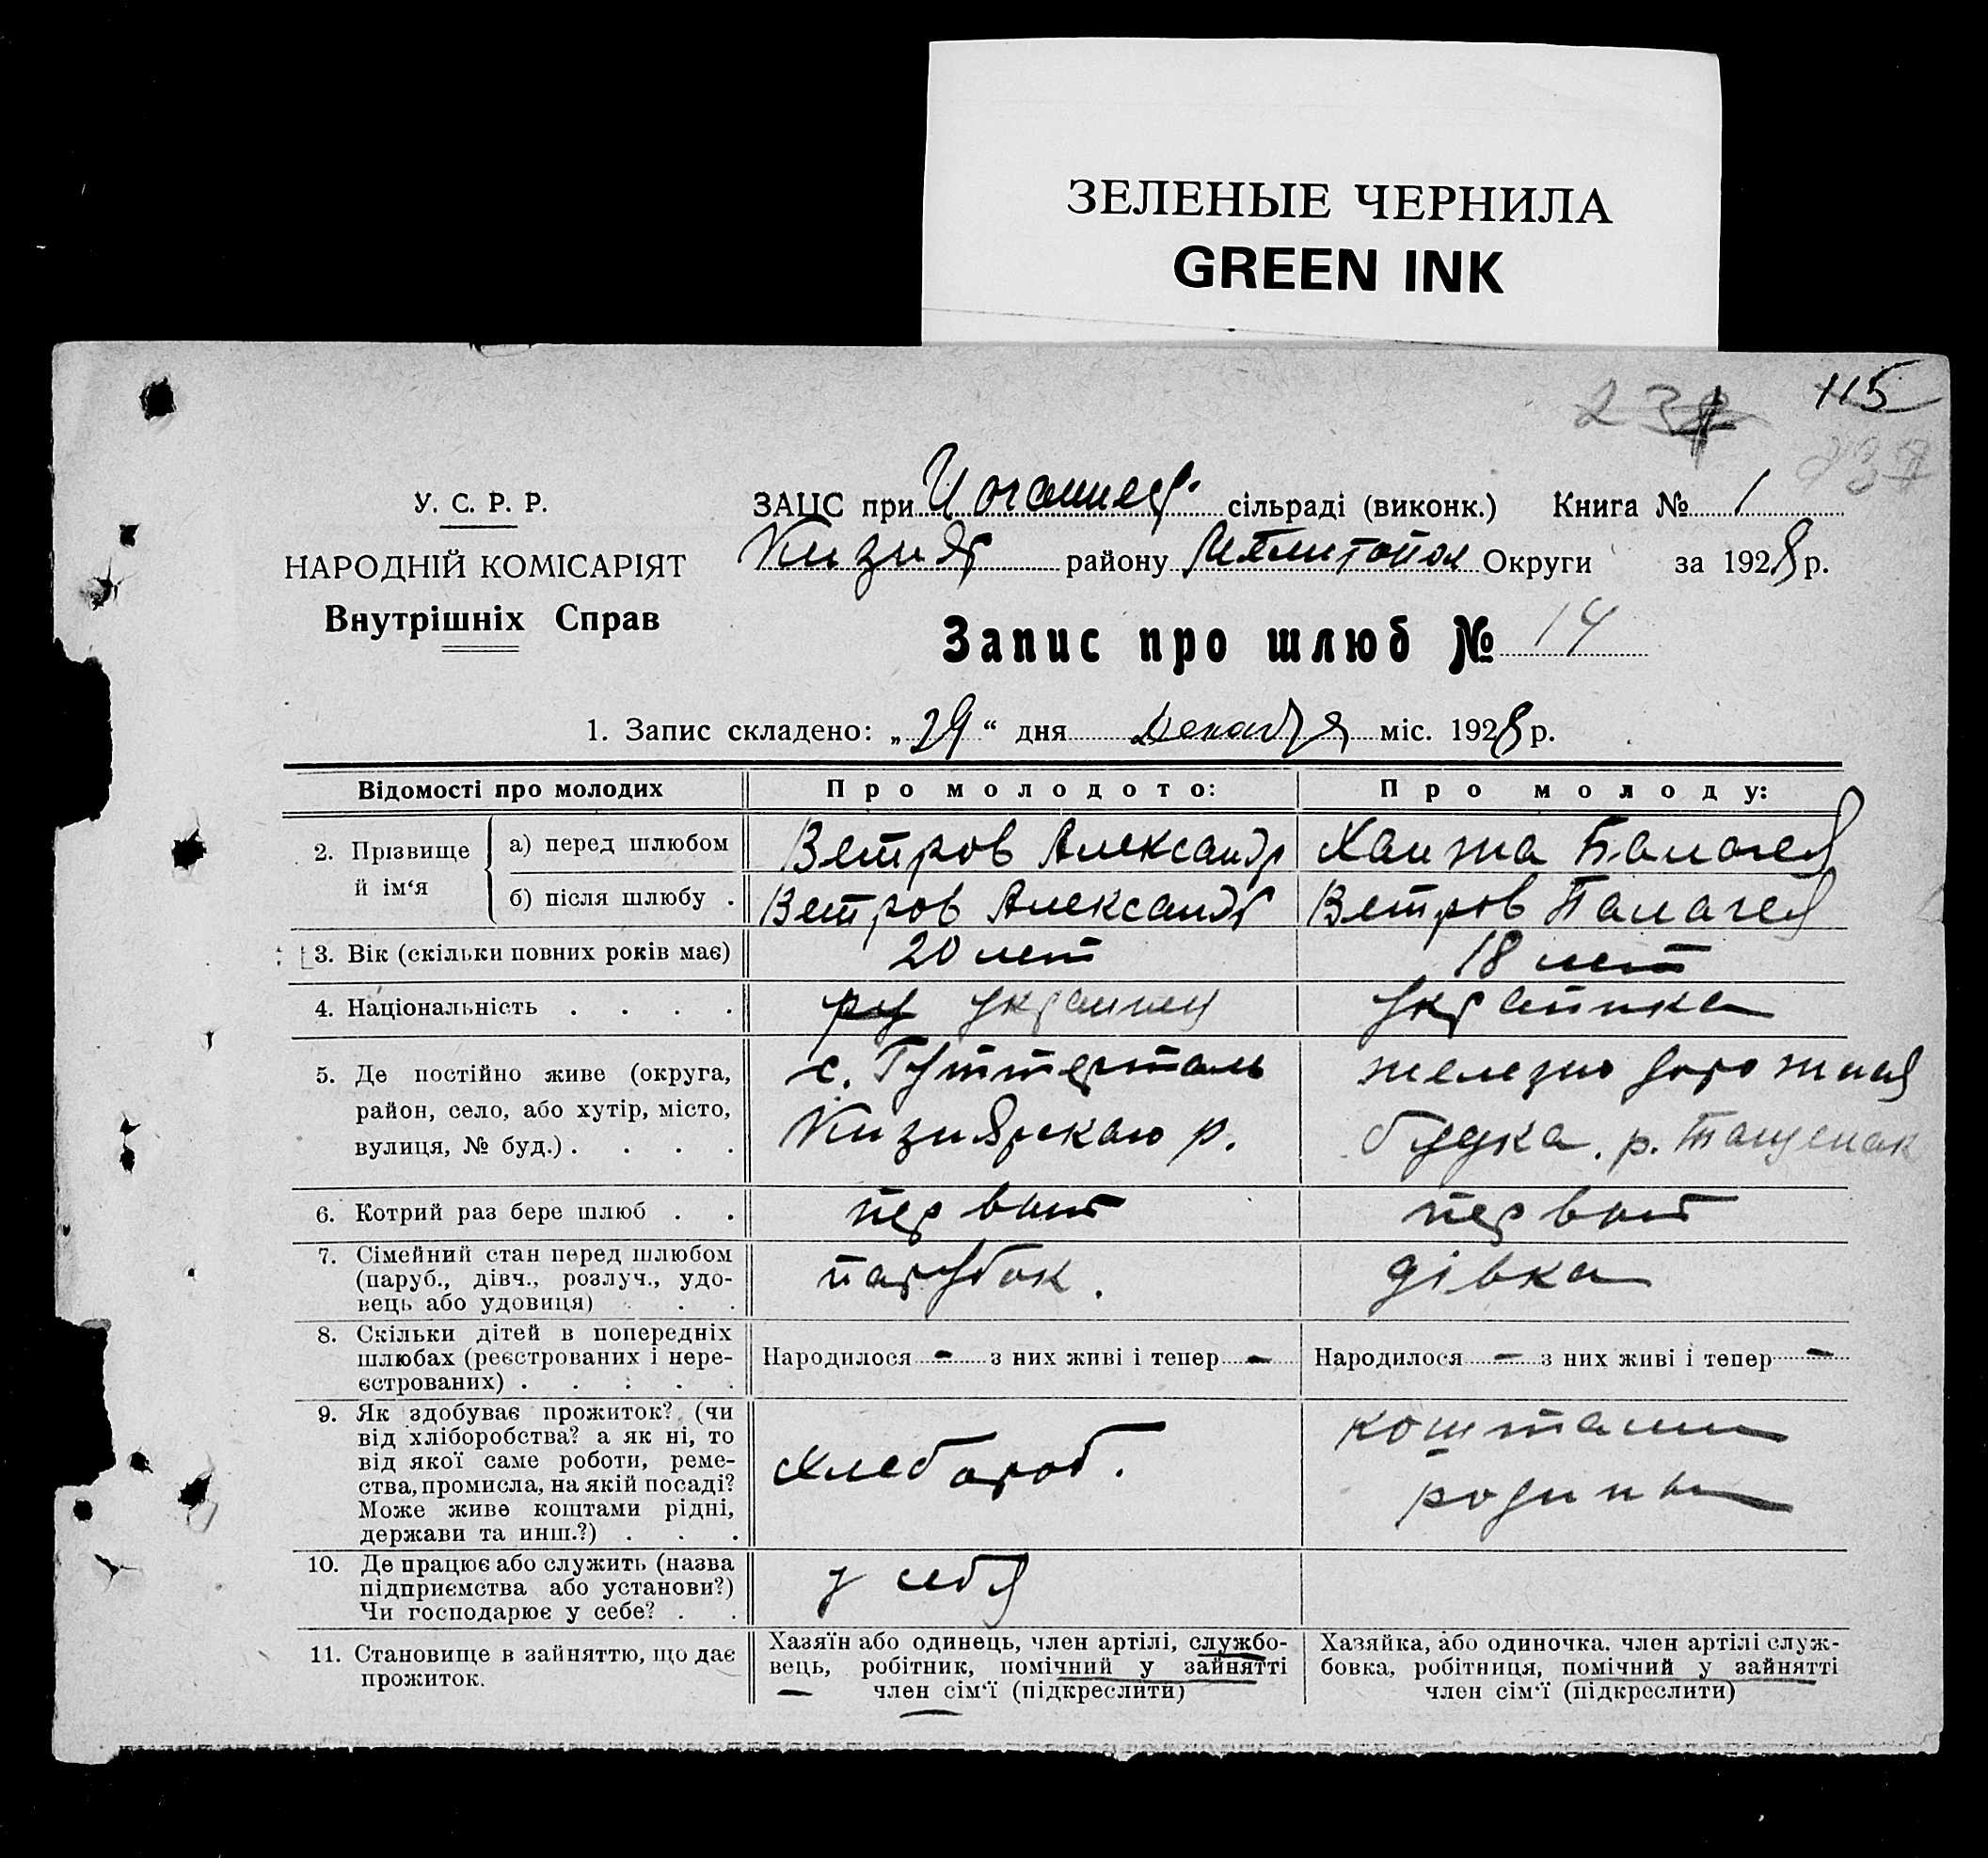 ЗЕЛЕНЫЕ ЧЕРНИЛА
GREEN INK
115
У. С. Р. Р.
НАРОДНІЙ КОМІСАРІЯТ
Внутрішніх Справ
ЗАЦС при сільраді (виконк.) Книга № 1
Кизияр району Мелитопол Округи за 1928 р.
Запис про шлюб № 14
1. Запис складено: „29“ дня Декабря міс. 1928 р.
Відомості про молодих
Про молодого:
Про молоду:
2. Прізвище й ім‘я
а) перед шлюбом
Ветров Александр
Ханжа Палагея
б) після шлюбу .
Ветров Александр
Ветров Палагея
3. Вік (скільки повних років має)
20 лет
18 лет
4. Національність . . . .
ру украинец
украинка
5. Де постійно живе (округа,
район, село, або хутір, місто,
вулиця, № буд.) . . . .
с. Гуттерталь
Кизиярскаго р.
железно дорожная
будка. р. Тащенак
6. Котрий раз бере шлюб . .
первый
первый
7. Сімейний стан перед шлюбом
(паруб., дівч., розлуч., удо-
вець або удовиця) . . .
парубок.
дівка
8. Скільки дітей в попередніх
шлюбах (реєстрованих і нере-
єстрованих) . . . . .
Народилося — з них живі і тепер —
Народилося — з них живі і тепер —
9. Як здобуває прожиток? (чи
від хліборобства? а як ні, то
від якої саме роботи, реме-
ства, промисла, на якій посаді?
Може живе коштами рідні,
держави та инш.?) . . .
хлебороб.
коштами
родины
10. Де працює або служить (назва
підприємства або установи?)
Чи господарює у себе? . .
у себя
11. Становище в зайняттю, що дає
прожиток.
Хазяїн або одинець, член артілі, службо-
вець, робітник, помічний у зайнятті
член сім‘ї (підкреслити)
Хазяйка, або одиночка. член артілі служ-
бовка, робітниця, помічний у зайнятті
член сім‘ї (підкреслити)